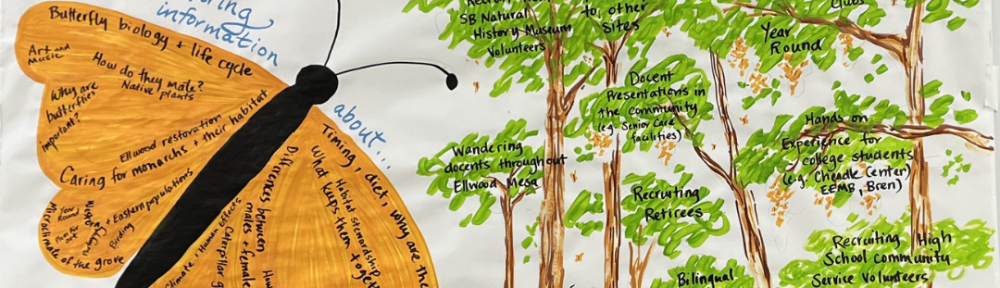 information
Butterfly biology + life cycle
Art and
Music
How do they mate?
Native plants
Why are
butterflies
important?
Ellwood restoration
Caring for monarchs + their habitat
+ Eastern populations
Year
Round
Birding
Microclimate of the grove
about...
Timing, diet, why are the
What keeps them toge
Habitat stewardship
Differences between
males + female
Human effects
Caterpillar
Climate
How
SB Natural
History Museum
Volunteers
to other
Sites
Clubs
Year
Round
Docent
Presentations in
the community
(eg. Senior Care
facilities)
Wandering
docents throughout
Ellwood Mesa
Hands on
Experience for
college students
(e.g. Cheadle Center,
EEMB, Bren)
Recruiting
Retirees
Recruiting High
School Community
Service Volunteers
Bilingual